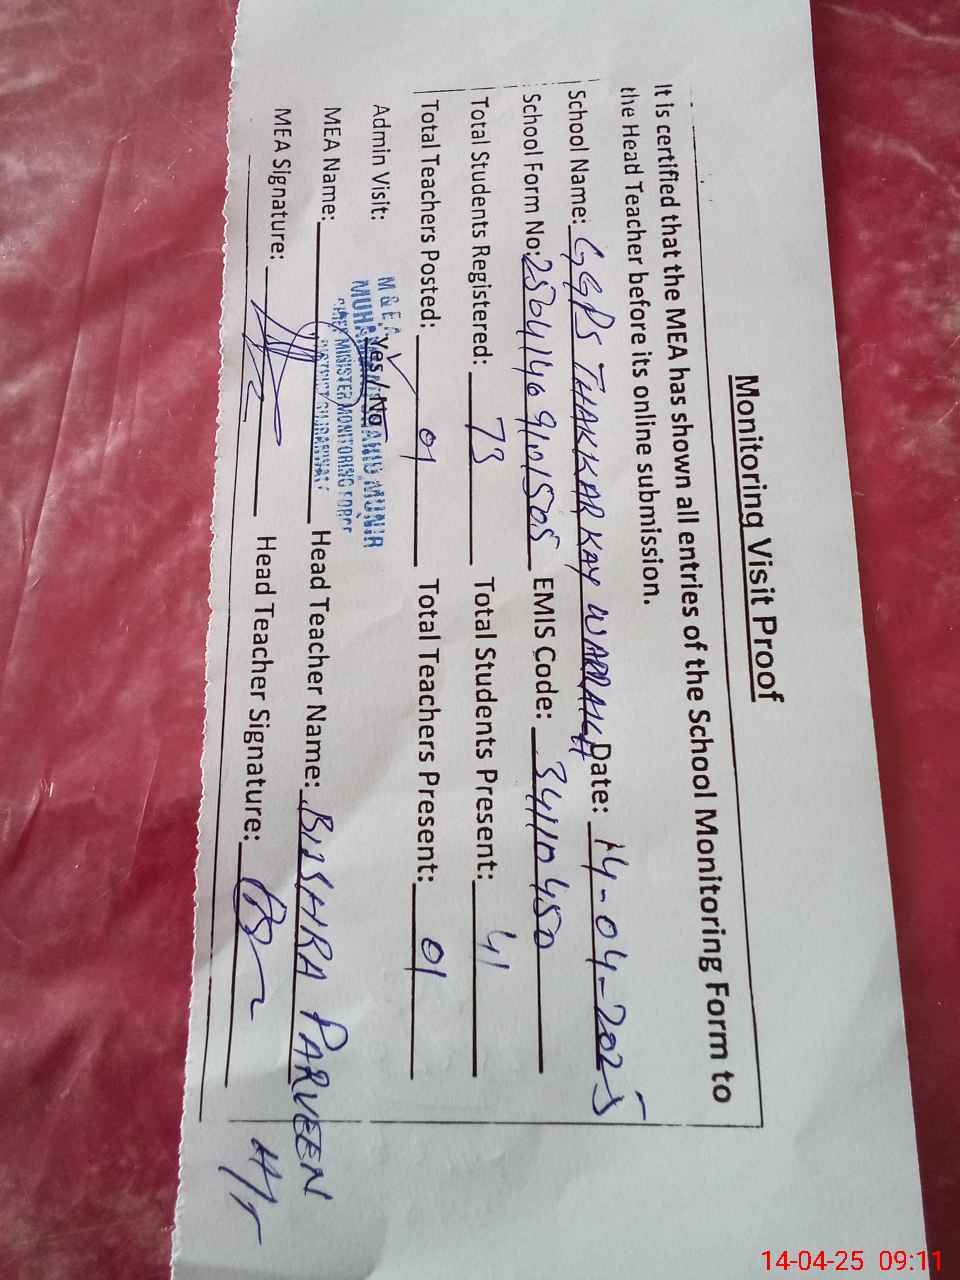 Monitoring Visit Proof
It is certified that the MEA has shown all entries of the School Monitoring Form to
the Head Teacher before its online submission.
School Name: GGPS THAKKAR KAY WARRAICH Date: 14-04-2025
School Form No: 25041469101505 EMIS Code: 34110450
Total Students Registered: 73 Total Students Present: 41
Total Teachers Posted: 01 Total Teachers Present: 01
Admin Visit: Yes/No
M & E A
MUNIR
CHIEF MINISTER MONITORING FORCE
DISTRICT GUJRANWALA
MEA Name: Head Teacher Name: BUSHRA PARVEEN
MEA Signature: Head Teacher Signature: H/T
14-04-25 09:11